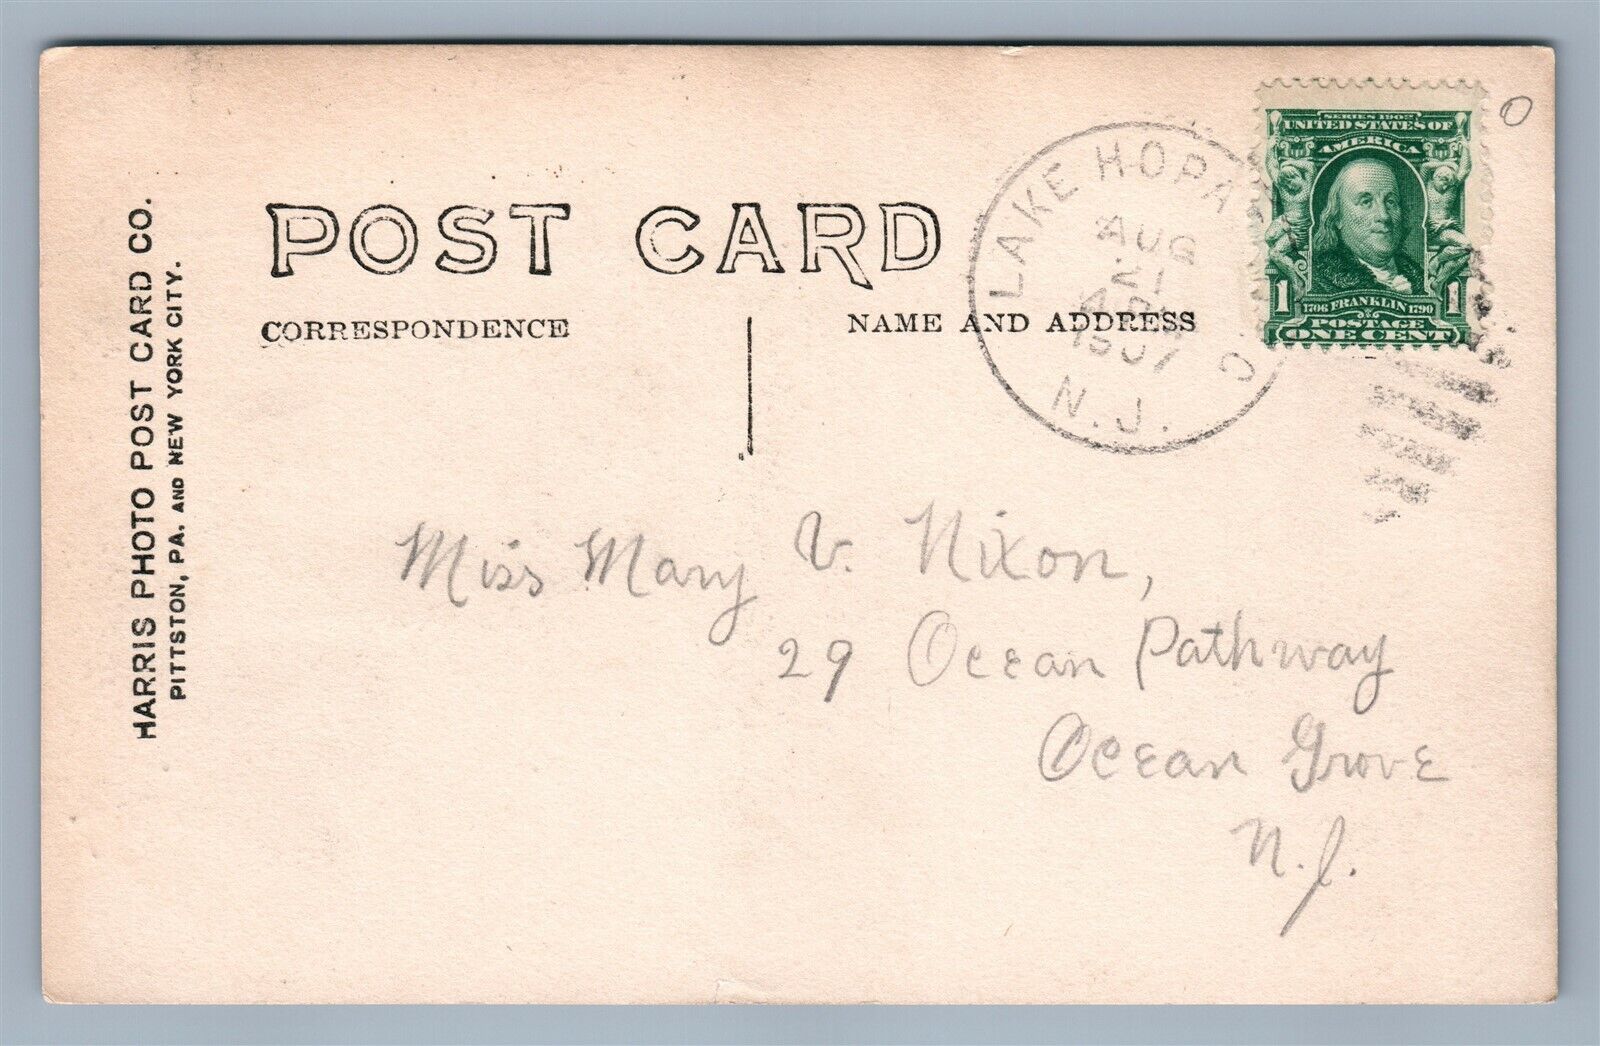 HARRIS PHOTO POST CARD CO.
PITTSTON, PA. AND NEW YORK CITY.
POST CARD
CORRESPONDENCE
NAME AND ADDRESS
LAKE HOPA C
AUG
21
1907
N.J.
SERIES 1902
UNITED STATES OF
AMERICA
1 1706 FRANKLIN 1790 1
POSTAGE
ONE CENT
O
Miss Mary V. Nixon,
29 Ocean Pathway
Ocean Grove
N.J.